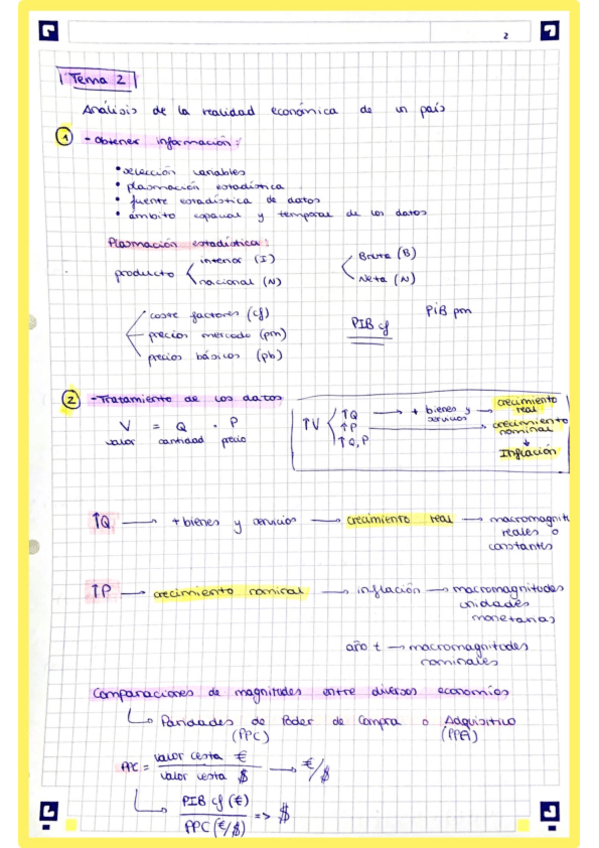 2
Tema 2
Análisis de la realidad económica de un país
1 - Obtener información:
• selección variables
• plasmación estadística
• fuente estadística de datos
• ámbito espacial y temporal de los datos
Plasmación estadística:
producto < interior (I) / nacional (N)    < Bruta (B) / Neta (N)
coste factores (cf)
precios mercado (pm)
precios básicos (pb)
PIB cf    PIB pm
2 - Tratamiento de los datos
V = Q · P
valor cantidad precio
↑V
↑Q → + bienes y servicios → crecimiento real
↑P → crecimiento nominal
↑Q, P
↓
Inflación
↑Q → + bienes y servicios → crecimiento real → macromagnit
reales o
constantes
↑P → crecimiento nominal → inflación → macromagnitudes
unidades
monetarias
año t → macromagnitudes
nominales
Comparaciones de magnitudes entre diversos economías
Paridades de Poder de Compra o Adquisitivo
(PPC) (PPA)
PPC = valor cesta € / valor cesta $ → €/$
PIB cf (€) / PPC (€/$) => $